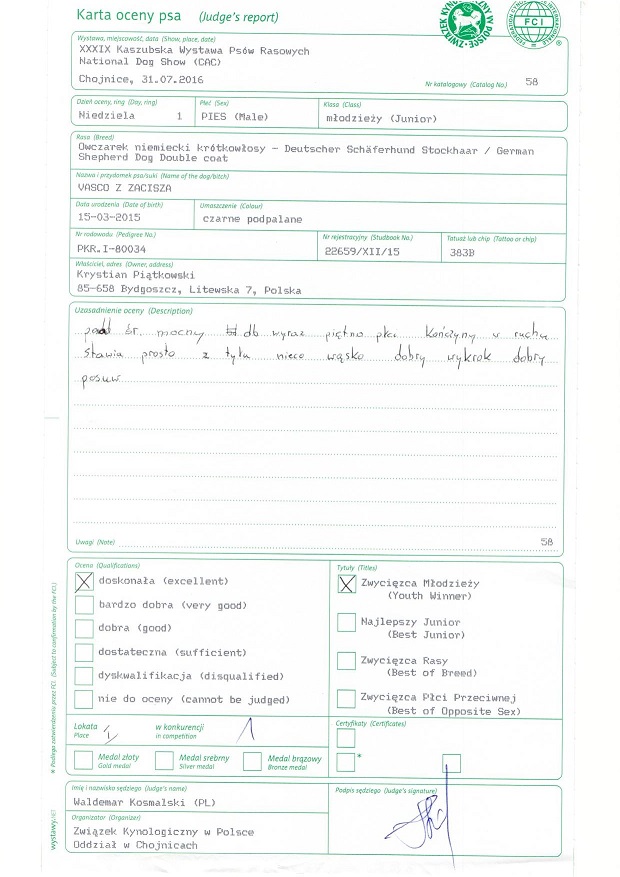 Karta oceny psa (Judge's report)
ZWIĄZEK KYNOLOGICZNY W POLSCE
FCI
FEDERATION CYNOLOGIQUE INTERNATIONALE
®
Wystawa, miejscowość, data (Show, place, date)
XXXIX Kaszubska Wystawa Psów Rasowych
National Dog Show (CAC)
Chojnice, 31.07.2016
Nr katalogowy (Catalog No.) 58
Dzień oceny, ring (Day, ring) Płeć (Sex) Klasa (Class)
Niedziela 1 PIES (Male) młodzieży (Junior)
Rasa (Breed)
Owczarek niemiecki krótkowłosy - Deutscher Schäferhund Stockhaar / German
Shepherd Dog Double coat
Nazwa i przydomek psa/suki (Name of the dog/bitch)
VASCO Z ZACISZA
Data urodzenia (Date of birth) Umaszczenie (Colour)
15-03-2015 czarne podpalane
Nr rodowodu (Pedigree No.) Nr rejestracyjny (Studbook No.) Tatuaż lub chip (Tattoo or chip)
PKR.I-80034 22659/XII/15 383B
Właściciel, adres (Owner, address)
Krystian Piątkowski
85-658 Bydgoszcz, Litewska 7, Polska
Uzasadnienie oceny (Description)
śr. mocny db wyraz piętno płci Kończyny w ruchu
stawia prosto z tyłu nieco wąsko dobry wykrok dobry
posuw
Uwagi (Note) 58
Ocena (Qualifications)
doskonała (excellent)
bardzo dobra (very good)
dobra (good)
dostateczna (sufficient)
dyskwalifikacja (disqualified)
nie do oceny (cannot be judged)
Tytuły (Titles)
Zwycięzca Młodzieży
(Youth Winner)
Najlepszy Junior
(Best Junior)
Zwycięzca Rasy
(Best of Breed)
Zwycięzca Płci Przeciwnej
(Best of Opposite Sex)
Lokata w konkurencji
Place I in competition 1
Medal złoty Medal srebrny Medal brązowy
Gold medal Silver medal Bronze medal
Certyfikaty (Certificates)
*
* Podlega zatwierdzeniu przez FCI (Subject to confirmation by the FCI)
wystawy.NET
Imię i nazwisko sędziego (Judge's name)
Waldemar Kosmalski (PL)
Organizator (Organizer)
Związek Kynologiczny w Polsce
Oddział w Chojnicach
Podpis sędziego (Judge's signature)